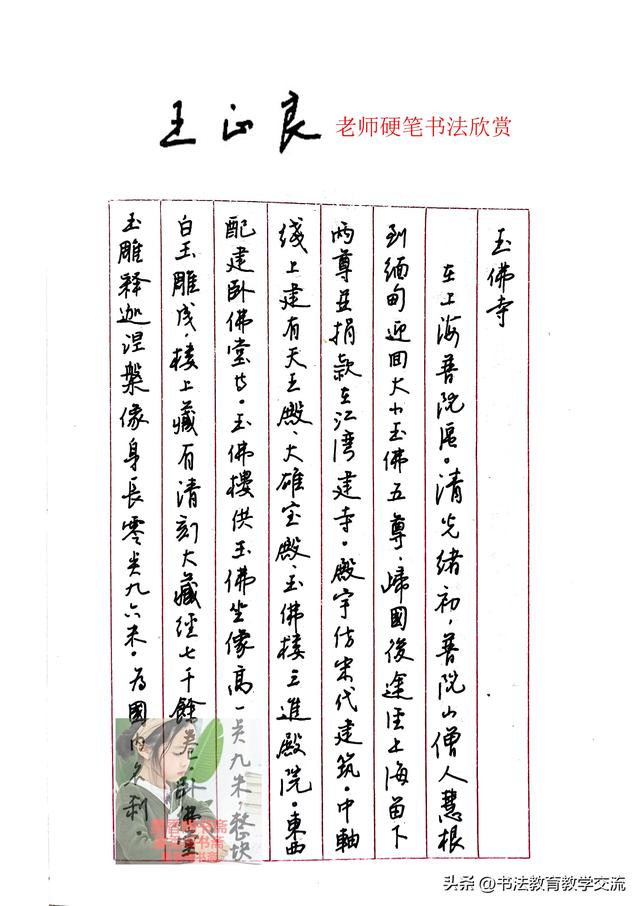 王正良 老师硬笔书法欣赏
玉佛寺
在上海普陀區。清光绪初，普陀山僧人慧根
到緬甸迎回大小玉佛五尊、歸國後途径上海留下
两尊并捐款在江湾建寺。殿宇仿宋代建筑。中軸
线上建有天王殿、大雄宝殿、玉佛楼三進殿院。東西
配建卧佛堂等。玉佛樓供玉佛坐像高一点九米，整块
白玉雕成，楼上藏有清刻大藏經七千餘卷。卧佛堂
玉雕释迦涅槃像身長零点九六米。为國内名刹。
头条 @书法教育教学交流